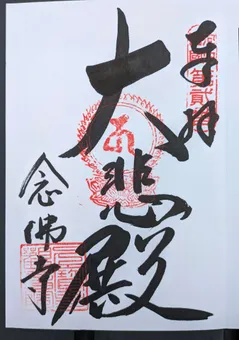 奉拝
大悲殿
念佛寺